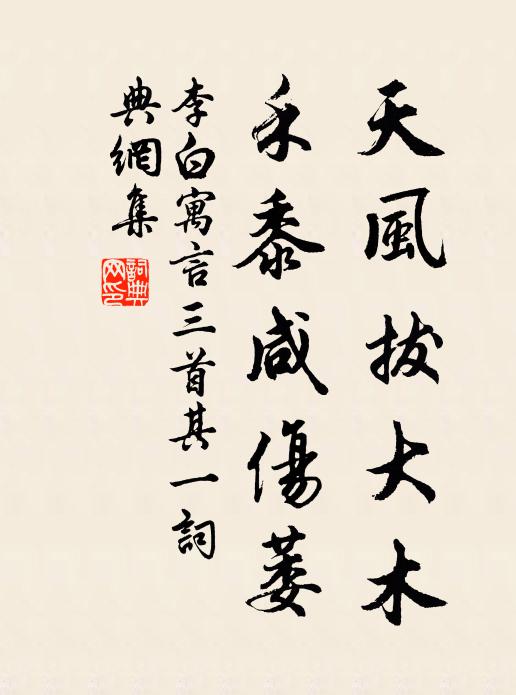 天風拔大木
禾黍咸傷萎
李白寓言三首其一詞
典網集
詞典網印